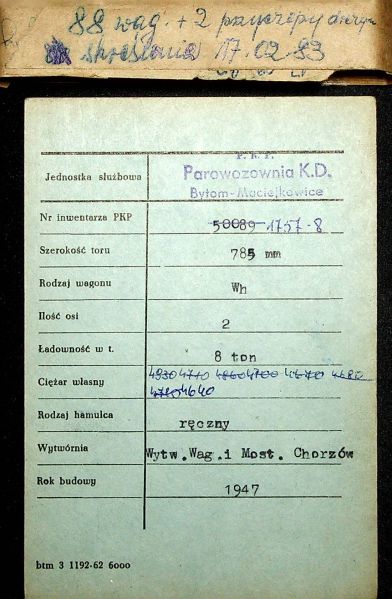 88 wag. + 2 przyczepy
skreślenia 17.02.93
P.K.P.
Jednostka służbowa Parowozownia K.D.
Bytom-Maciejkowice
Nr inwentarza PKP 50089 1757-8
Szerokość toru 785 mm
Rodzaj wagonu Wh
Ilość osi 2
Ładowność w t. 8 ton
Ciężar własny 4930 4710 4860 4700 4670
4640
Rodzaj hamulca ręczny
Wytwórnia Wytw.Wag.i Most. Chorzów
Rok budowy 1947
btm 3 1192-62 6000